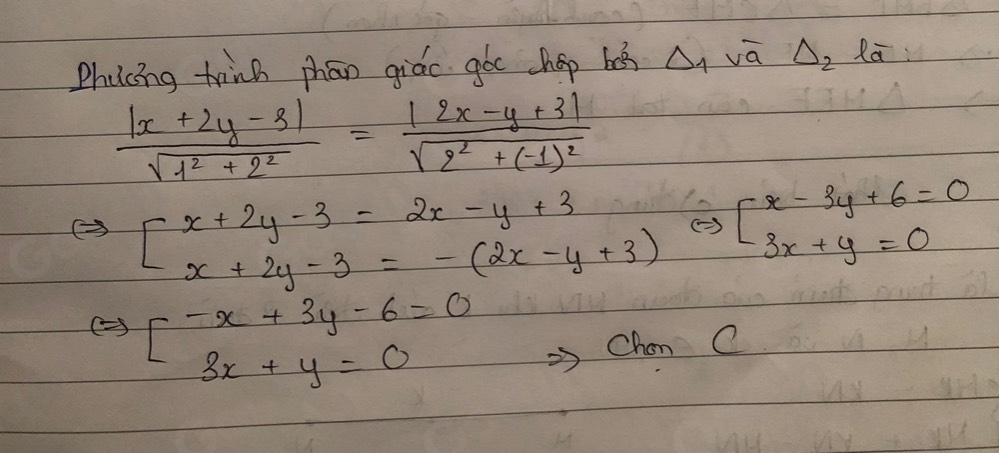 Phương trình phân giác góc hợp bởi Δ₁ và Δ₂ là:
|x + 2y - 3| / √(1² + 2²) = |2x - y + 3| / √(2² + (-1)²)
⇔ [ x + 2y - 3 = 2x - y + 3 ⇔ [ x - 3y + 6 = 0
x + 2y - 3 = - (2x - y + 3) 3x + y = 0
⇔ [ -x + 3y - 6 = 0
3x + y = 0 ⇒ Chọn C